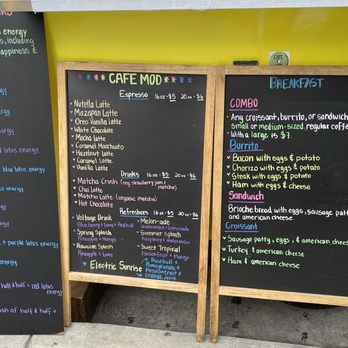 energy
including
happiness &
energy
energy
lotus energy
energy
energy
& purple lotus energy
energy
half & red lotus
energy
of half & half +
CAFE MOD
Espresso 16oz-$5 20oz-$6
Nutella Latte
Mazapan Latte
Oreo Vanilla Latte
White Chocolate
Mocha Latte
Caramel Macchiato
Hazelnut Latte
Caramel Latte
Vanilla Latte
Drinks 16oz-$5 20oz-$6
Matcha Crush (strawberry jam & matcha)
Chai Latte
Matcha Latte (organic matcha)
Hot Chocolate
Refreshers 16oz-$5 20oz-$6
Voltage Drink
Blueberry, Lime & Red bull
Spring Splash
Pineapple & Mango
Hawaiian Splash
Pineapple & Mango
Melon-ade
Watermelon & lime
Summer Splash
Raspberry & Watermelon
Sweet Tropical
Passionfruit & Mango
Electric Sunrise
Redbull
Pomegranate &
Passionfruit &
orange juice
BREAKFAST
COMBO
Any croissant, burrito, or sandwich
small or medium-sized regular coffee
With a large is $7.
Burrito
Bacon with eggs & potato
Chorizo with eggs & potato
Steak with eggs & potato
Ham with eggs & cheese
Sandwich
Brioche bread with eggs, sausage patty
and american cheese
Croissant
Sausage patty, eggs, & american cheese
Turkey & american cheese
Ham & american cheese